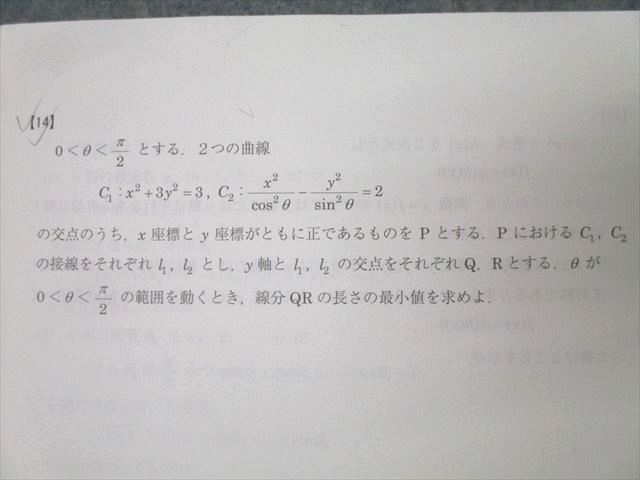 【14】
0<θ<π/2 とする．2つの曲線
C₁：x²+3y²=3，C₂：x²/cos²θ − y²/sin²θ =2
の交点のうち，x座標とy座標がともに正であるものをPとする．PにおけるC₁，C₂
の接線をそれぞれl₁，l₂とし，y軸とl₁，l₂の交点をそれぞれQ，Rとする．θが
0<θ<π/2 の範囲を動くとき，線分QRの長さの最小値を求めよ．